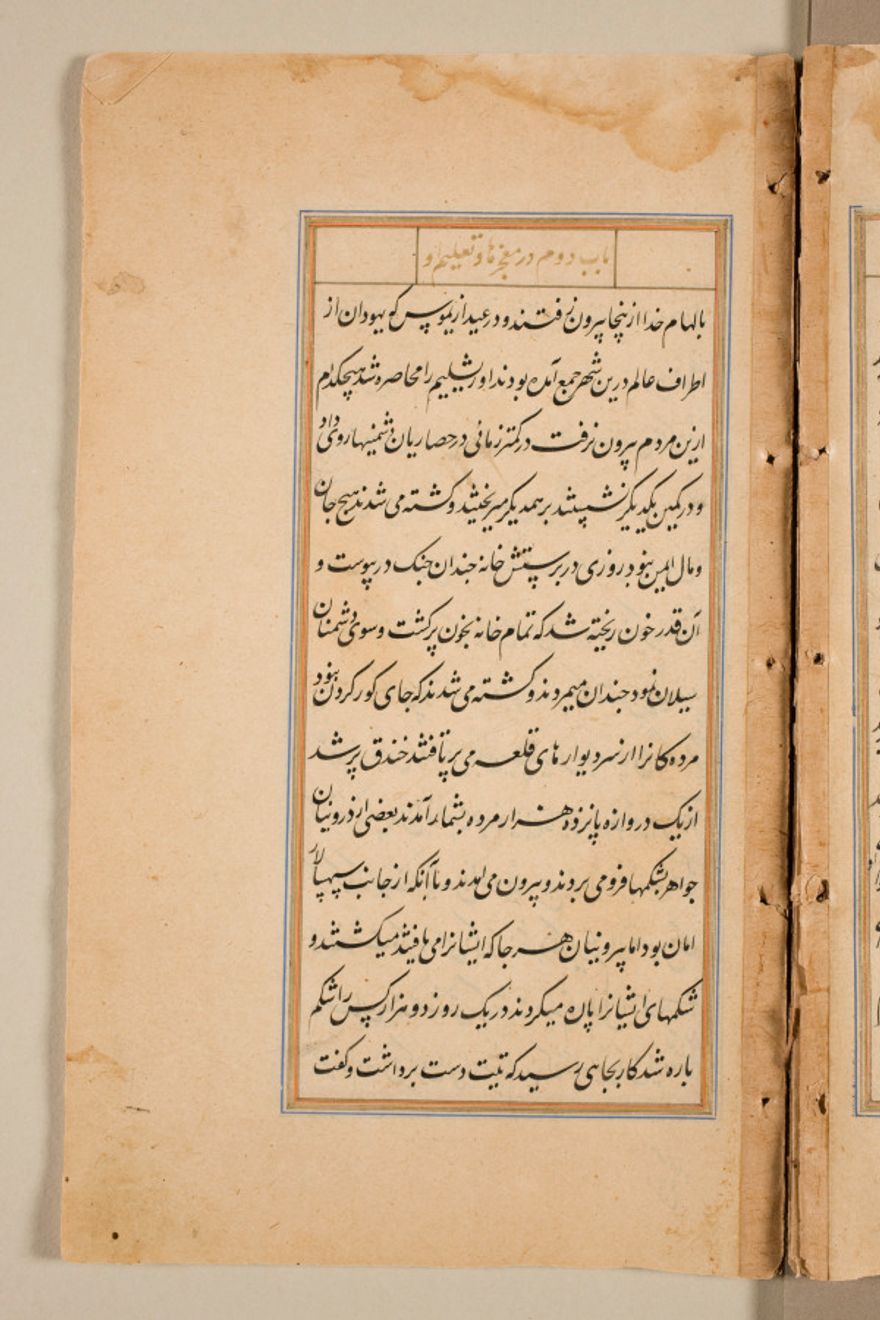 باب دوم در معجزها و تعلیم او
بالهام خدا از ینجا بیرون رفتند و در عید ازیموس که یهودان از
اطراف عالم درین شهر جمع آمده بودند اورشلیم را محاصره شد هیچکدام
ازین مردم بیرون نرفت در کمتر زمانی در حصاریان دشمنیها روی داد
و در کمین یکدیگر نشستند بر همدیگر میریختند و کشته می شدند هیچ جان
و مال ایمن نبود روزی در پرستش خانه چندان جنک در پیوست و
آن قدر خون ریخته شد که تمام خانه بخون پر گشت و سوی دشمنان
سیلان نمود چندان میمردند و کشته می شدند که جای کور کردن نبود
مرده کانرا از سر دیوارهای قلعه می برتافتند خندق پر شد
از یک دروازه پانزده هزار مرده بشمار آمدند بعضی از درونیان
جواهر بشکمها فرو می بردند و بیرون می امدند و با آنکه از جانب سپهسالار
امان بود اما بیرونیان هر جا که ایشانرا می یافتند میکشتند و
شکمهای ایشانرا پاره میکردند در یک روز دو هزار کس را شکم
پاره شد کار بجایی رسید که تیت دست برداشت و گفت